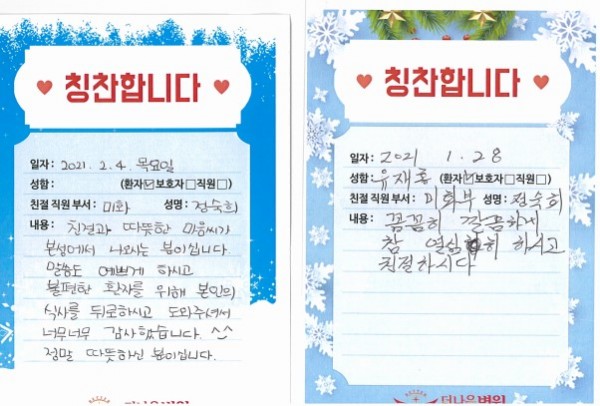 칭찬합니다
일자 : 2021. 2. 4. 목요일
성함 : (환자☑보호자☐직원☐)
친절 직원 부서 : 미화 성명 : 정숙희
내용 : 친절과 따뜻한 마음씨가
본성에서 나오시는 분이십니다.
말씀도 예쁘게 하시고
불편한 환자를 위해 본인의
식사를 뒤로하시고 도와주셔서
너무너무 감사했습니다. ^^
정말 따뜻하신 분이십니다.
칭찬합니다
일자 : 2021 1. 28
성함 : 유재흥 (환자☑보호자☐직원☐)
친절 직원 부서 : 미화부 성명 : 정숙희
내용 : 꼼꼼히 깔끔하게
참 열심히 하시고
친절하시다
더나은병원